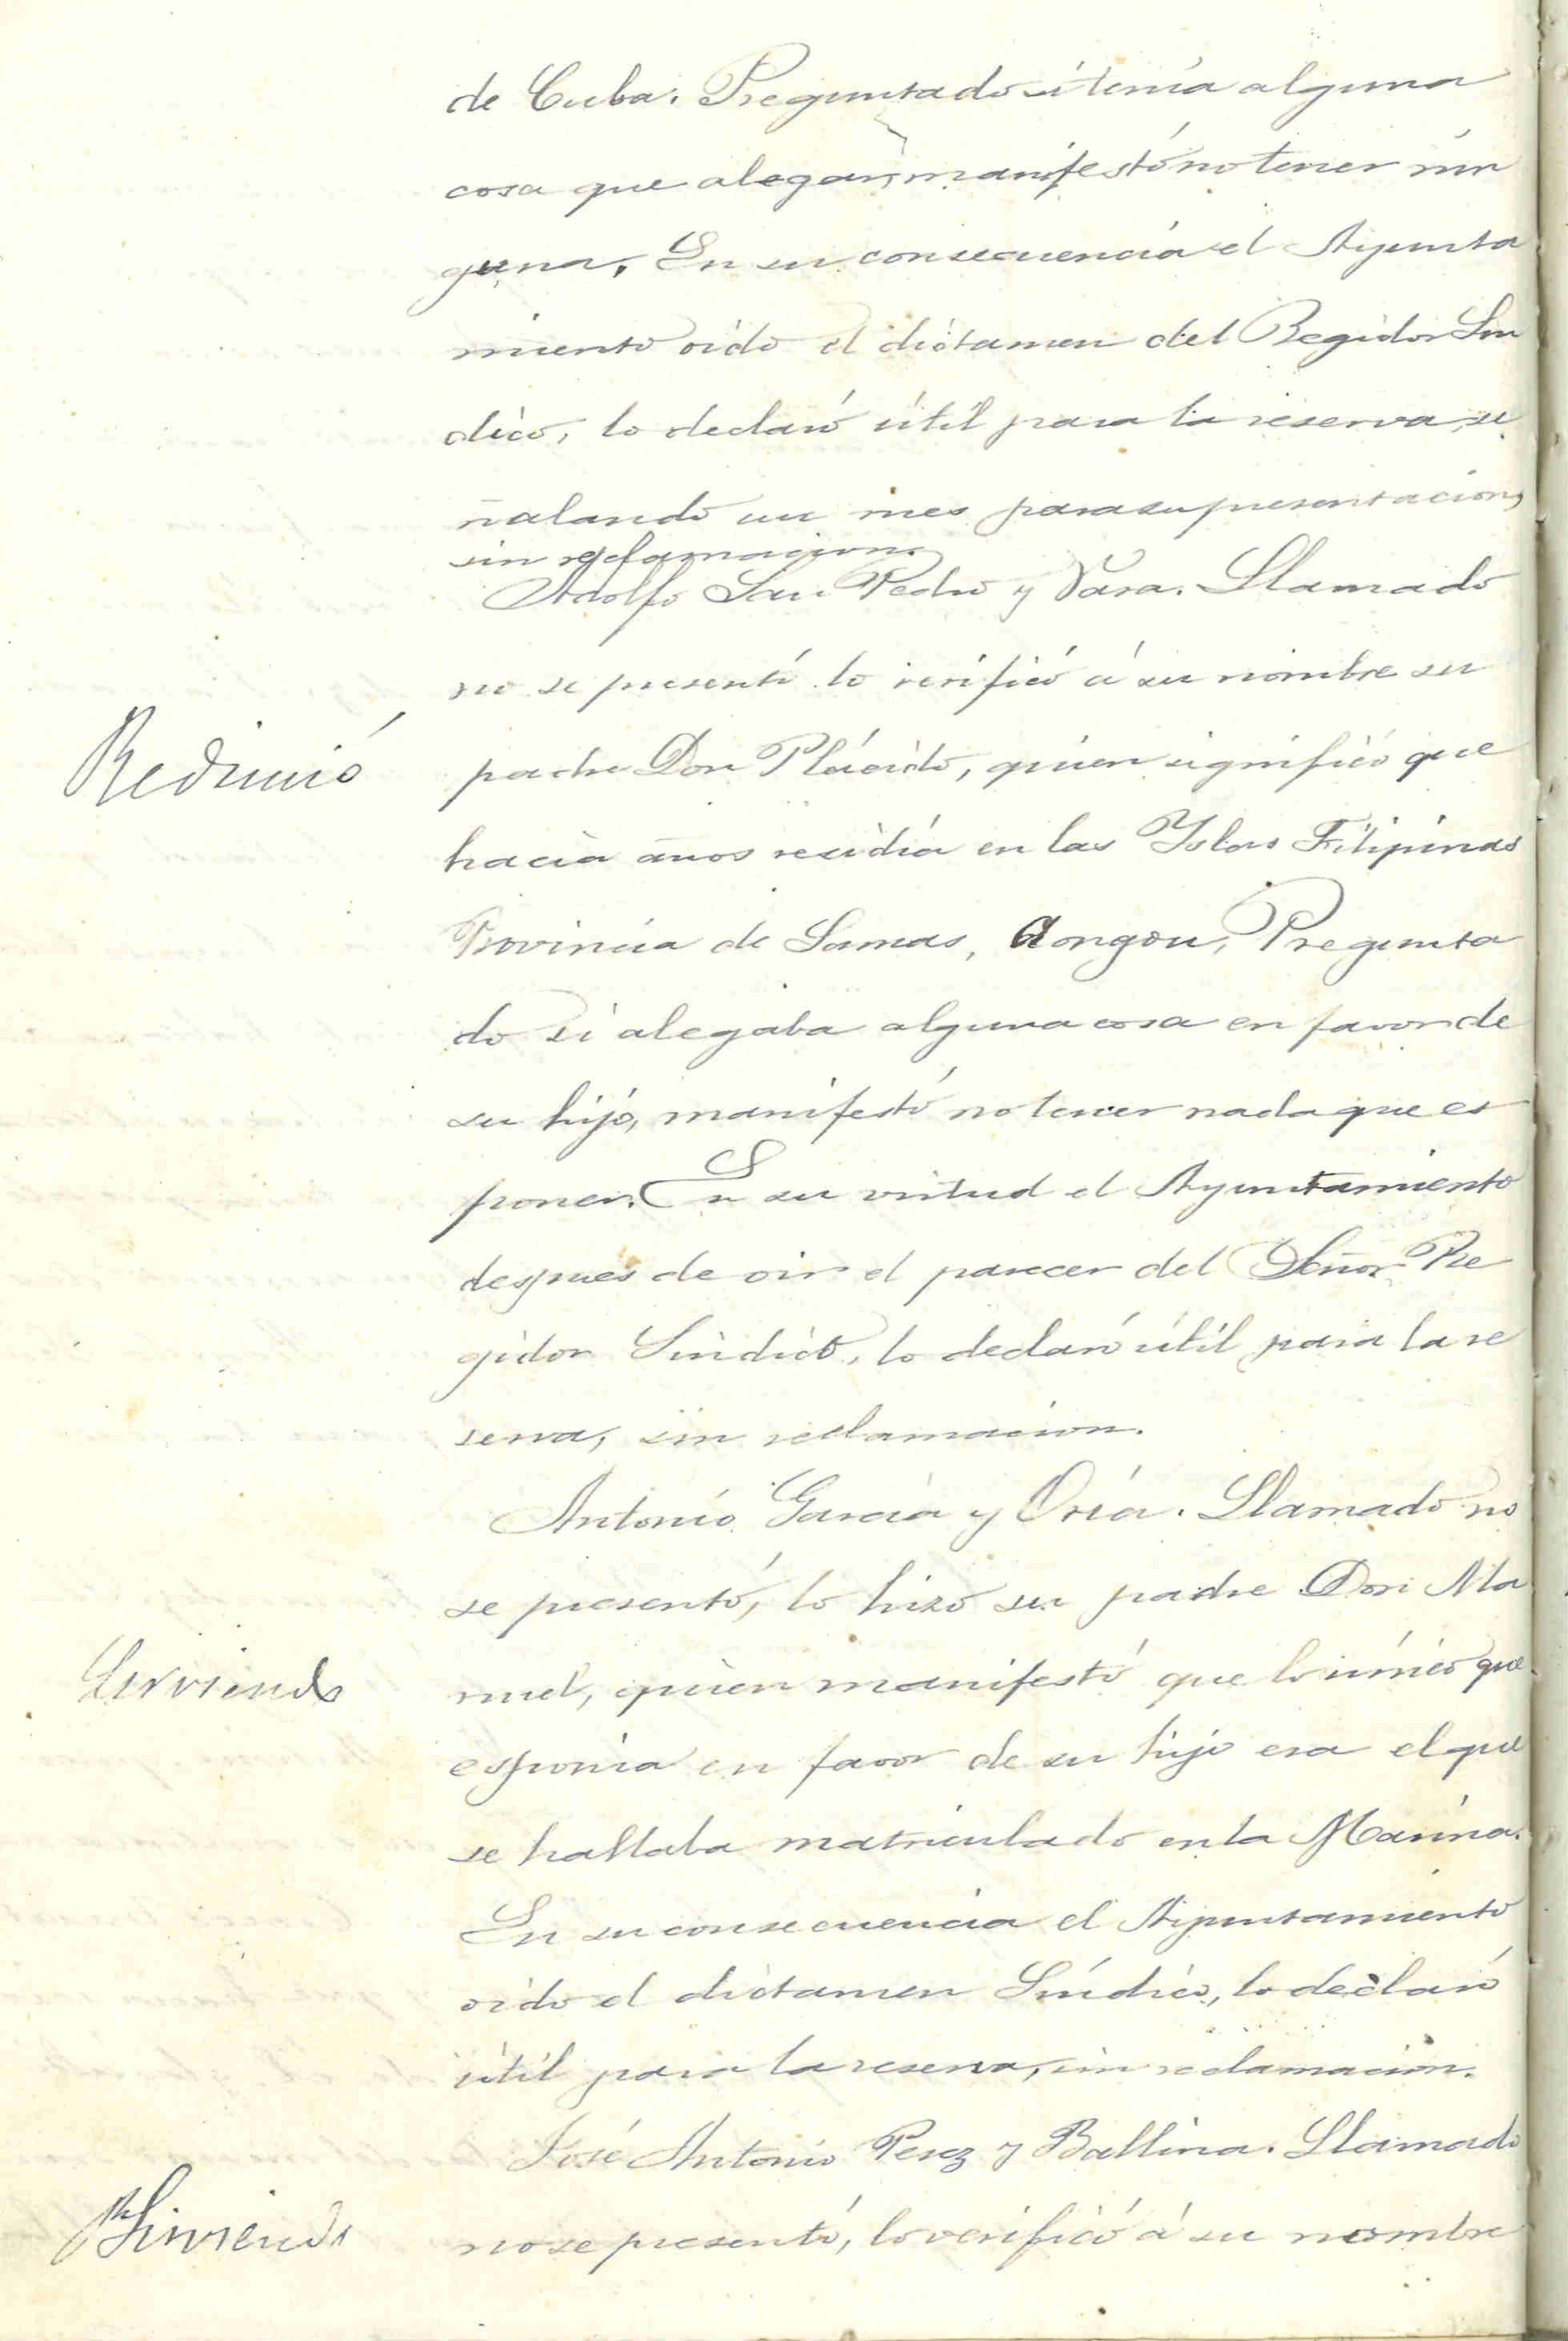 de Cuba. Preguntado si tenía alguna
cosa que alegar, manifestó no tener nin
guna. En su consecuencia el Ayunta
miento oido el dictámen del Regidor Sin
dico, lo declaró útil para la reserva, se
ñalando un mes para su presentacion,
sin reclamacion.
Adolfo San Pedro y Vara. Llamado
no se presentó lo verificó á su nombre su
Redimió
padre Don Plácido, quien significó que
hacia años residía en las Yslas Filipinas
Provincia de Samas, Aongon, Pregunta
do si alegaba alguna cosa en favor de
su hijo, manifestó no tener nada que es
poner. En su virtud el Ayuntamiento
despues de oir el parecer del Señor Re
gidor Sindico, lo declaró útil para la re
serva, sin reclamacion.
Antonio García y Oría. Llamado no
se presentó, lo hizo su padre Don Ma
Sirviendo
nuel, quien manifestó que lo único que
esponia en favor de su hijo era el que
se hallaba matriculado en la Marina.
En su consecuencia el Ayuntamiento
oido el dictamen Síndico, lo declaró
útil para la reserva, sin reclamacion.
José Antonio Perez y Ballina. Llamado
Sirviendo
no se presentó, lo verificó á su nombre